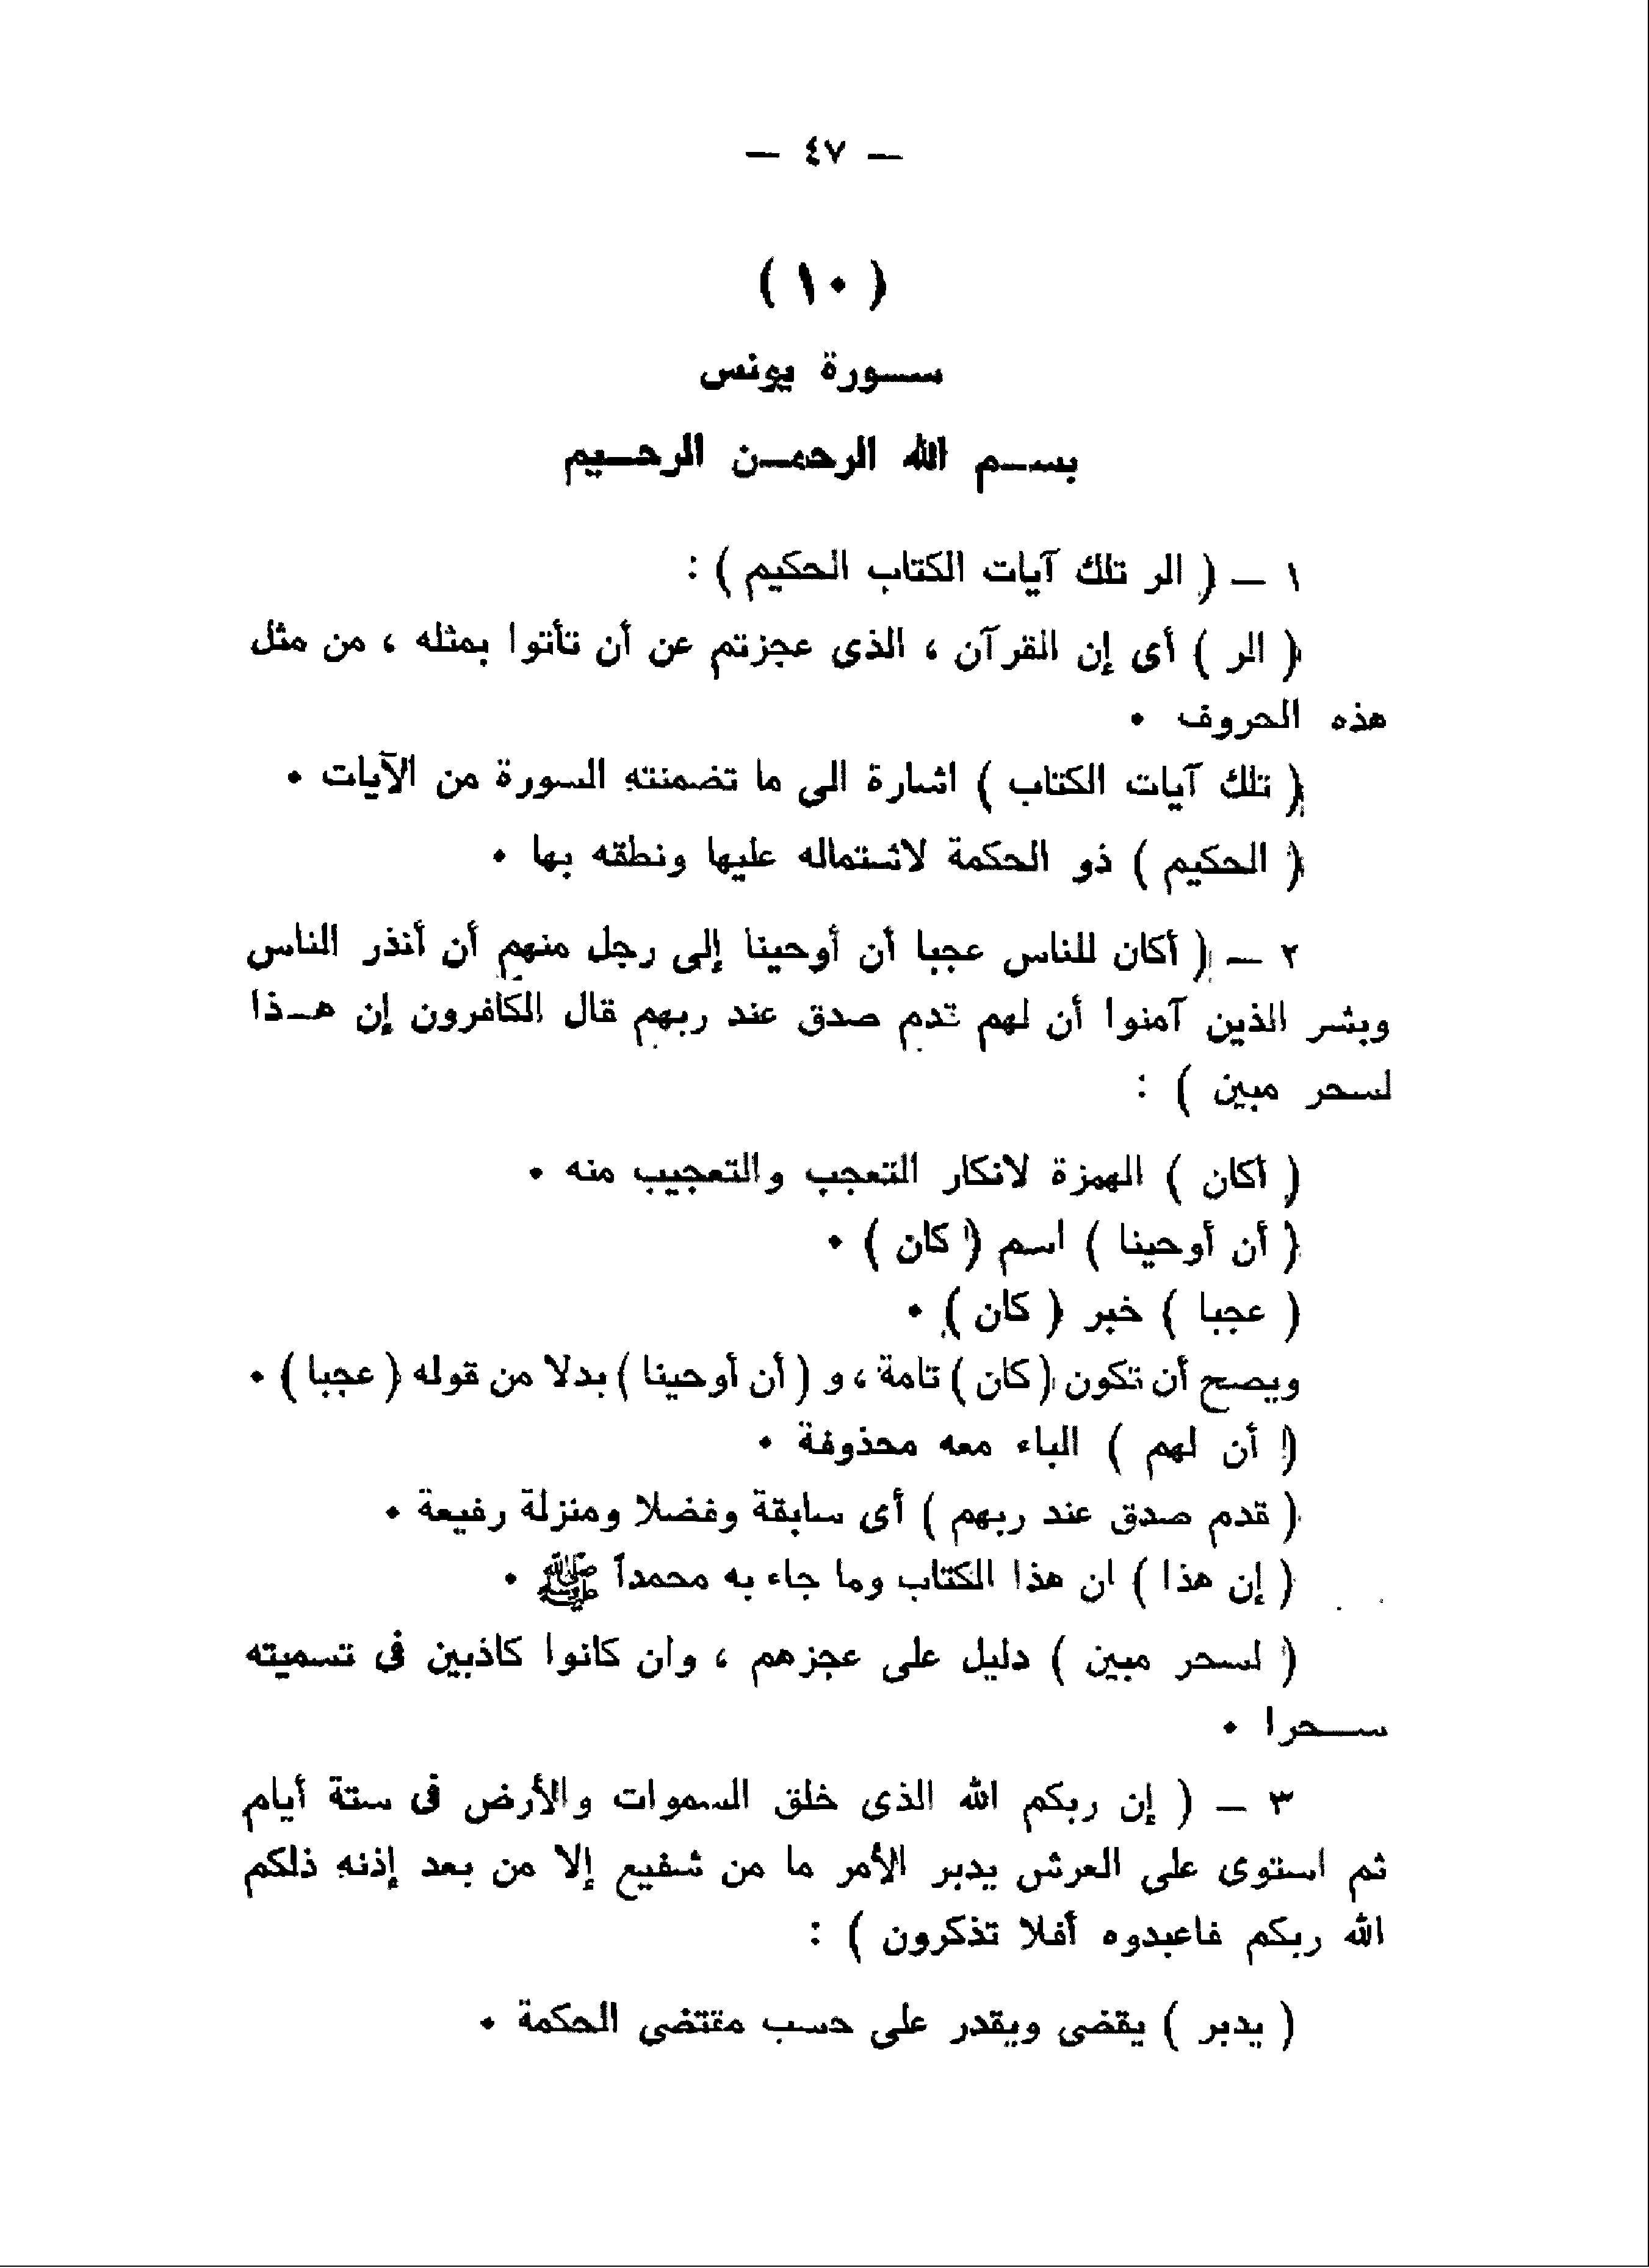 — ٤٧ —
( ١٠ )
سورة يونس
بسم الله الرحمن الرحيم
١ — ( الر تلك آيات الكتاب الحكيم ) :
( الر ) أى إن القرآن ، الذى عجزتم عن أن تأتوا بمثله ، من مثل
هذه الحروف .
( تلك آيات الكتاب ) اشارة الى ما تضمنته السورة من الآيات .
( الحكيم ) ذو الحكمة لاشتماله عليها ونطقه بها .
٢ — ( أكان للناس عجبا أن أوحينا إلى رجل منهم أن أنذر الناس
وبشر الذين آمنوا أن لهم قدم صدق عند ربهم قال الكافرون إن هذا
لسحر مبين ) :
( أكان ) الهمزة لانكار التعجب والتعجيب منه .
( أن أوحينا ) اسم ( كان ) .
( عجبا ) خبر ( كان ) .
ويصح أن تكون ( كان ) تامة ، و ( أن أوحينا ) بدلا من قوله ( عجبا ) .
( أن لهم ) الباء معه محذوفة .
( قدم صدق عند ربهم ) أى سابقة وفضلا ومنزلة رفيعة .
( إن هذا ) ان هذا الكتاب وما جاء به محمداً ﷺ .
( لسحر مبين ) دليل على عجزهم ، وان كانوا كاذبين فى تسميته
سحرا .
٣ — ( إن ربكم الله الذى خلق السموات والأرض فى ستة أيام
ثم استوى على العرش يدبر الأمر ما من شفيع إلا من بعد إذنه ذلكم
الله ربكم فاعبدوه أفلا تذكرون ) :
( يدبر ) يقضى ويقدر على حسب مقتضى الحكمة .